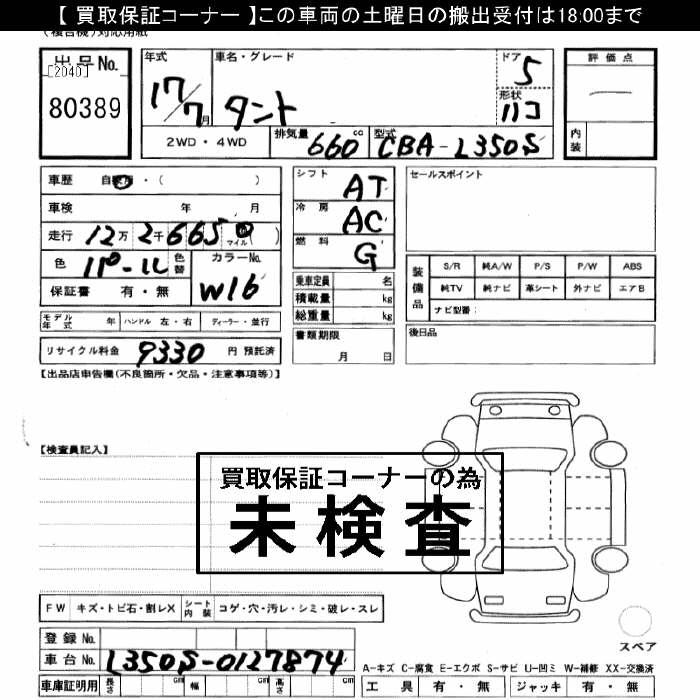 【 買取保証コーナー 】この車両の土曜日の搬出受付は18:00まで
(複合機)対応用紙
出品No.
[2040]
80389
年式
17/7月
車名・グレード
タント
ドア
5
形状
ハコ
評価点
内装
2WD・4WD
排気量 660 cc
型式 CBA-L350S
車歴 自家用・( )
車検 年 月
走行 12万2千6650(マイル)
色 パール 色替
カラーNo. W16
保証書 有・無
シフト AT
冷房 AC
燃料 G
乗車定員 名
積載量 kg
総重量 kg
セールスポイント
装備品
S/R 純A/W P/S P/W ABS
純TV 純ナビ 革シート 外ナビ エアB
ナビ型番:
モデル年式 年 ハンドル 左・右 ディーラー・並行
書類期限
月 日
後日品
リサイクル料金 9330 円 預託済
【出品店申告欄(不良箇所・欠品・注意事項等)】
【検査員記入】
買取保証コーナーの為
未検査
FW キズ・トビ石・割レX シート内装 コゲ・穴・汚レ・シミ・破レ・スレ
スペア
登録No.
車台No. L350S-0127874
A-キズ C-腐食 E-エクボ S-サビ U-凹ミ W-補修 XX-交換済
車庫証明用 長さ cm 幅 cm 高さ cm
工具 有・無 ジャッキ 有・無